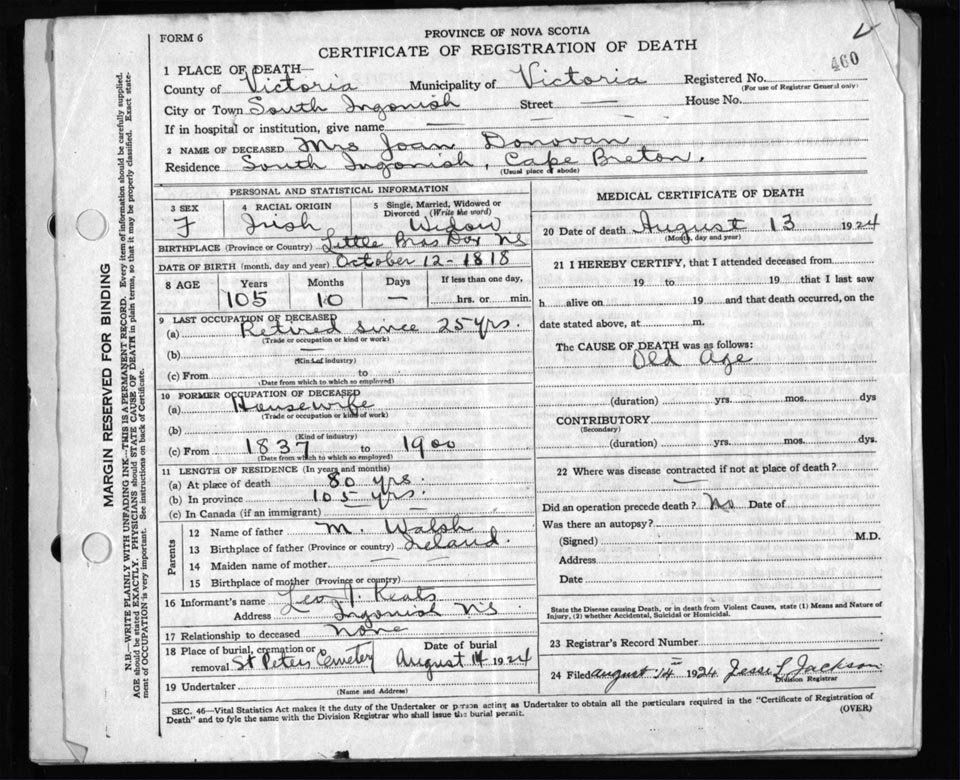 FORM 6
PROVINCE OF NOVA SCOTIA
CERTIFICATE OF REGISTRATION OF DEATH
460
1 PLACE OF DEATH—
County of Victoria Municipality of Victoria Registered No.
(For use of Registrar General only)
City or Town South Ingonish Street — House No.
If in hospital or institution, give name — —
2 NAME OF DECEASED Mrs Joan Donovan
Residence South Ingonish, Cape Breton.
(Usual place of abode)
PERSONAL AND STATISTICAL INFORMATION
3 SEX F
4 RACIAL ORIGIN Irish
5 Single, Married, Widowed or Divorced (Write the word) Widow
BIRTHPLACE (Province or Country) Little Bras Dor NS
DATE OF BIRTH (month, day and year) October 12-1818
8 AGE Years 105 Months 10 Days — If less than one day, hrs. or min.
9 LAST OCCUPATION OF DECEASED
(a) Retired since 25 yrs.
(Trade or occupation or kind or work)
(b) —
(Kind of industry)
(c) From to
(Date from which to which so employed)
10 FORMER OCCUPATION OF DECEASED
(a) Housewife
(Trade or occupation or kind of work)
(b)
(Kind of industry)
(c) From 1837 to 1900
(Date from which to which so employed)
11 LENGTH OF RESIDENCE (In years and months)
(a) At place of death 80 yrs.
(b) In province 105 yrs.
(c) In Canada (if an immigrant) —
Parents
12 Name of father M. Walsh
13 Birthplace of father (Province or country) Ireland.
14 Maiden name of mother —
15 Birthplace of mother (Province or country)
16 Informant's name Leo J. Keats
Address Ingonish NS
17 Relationship to deceased none
18 Place of burial, cremation or removal St Peters Cemetery Date of burial August 14 1924
19 Undertaker
(Name and Address)
MEDICAL CERTIFICATE OF DEATH
20 Date of death August 13 1924
(Month, day and year)
21 I HEREBY CERTIFY, that I attended deceased from
19 to 19 that I last saw
h alive on 19 and that death occurred, on the
date stated above, at m.
The CAUSE OF DEATH was as follows:
Old Age
(duration) yrs. mos. dys
CONTRIBUTORY
(Secondary)
(duration) yrs. mos. dys.
22 Where was disease contracted if not at place of death?
—
Did an operation precede death? No Date of
Was there an autopsy?
(Signed) M.D.
Address
Date
State the Disease causing Death, or in death from Violent Causes, state (1) Means and Nature of
Injury, (2) whether Accidental, Suicidal or Homicidal.
23 Registrar's Record Number
24 Filed august 14th 1924 Jessi L Jackson
Division Registrar
SEC. 46—Vital Statistics Act makes it the duty of the Undertaker or person acting as Undertaker to obtain all the particulars required in the "Certificate of Registration of
Death" and to fyle the same with the Division Registrar who shall issue the burial permit. (OVER)
MARGIN RESERVED FOR BINDING
N.B.—WRITE PLAINLY WITH UNFADING INK—THIS IS A PERMANENT RECORD. Every item of information should be carefully supplied.
AGE should be stated EXACTLY. PHYSICIANS should STATE CAUSE OF DEATH in plain terms, so that it may be properly classified. Exact state-
ment of OCCUPATION is very important. See instructions on back of Certificate.